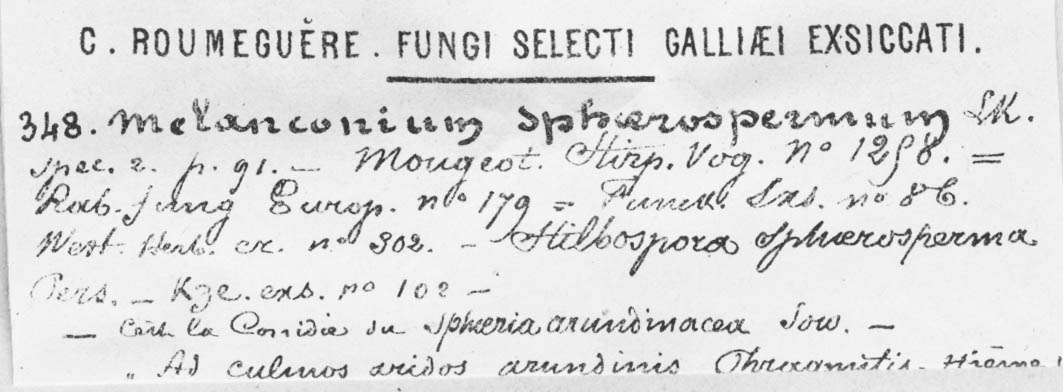 C. ROUMEGUÈRE. FUNGI SELECTI GALLIÆI EXSICCATI.
348. Melanconium Sphærospermum LK.
Spec. 2. p. 91. — Mougeot. Stirp. Vog. No 1258. =
Rab. fung Europ. no 179 = Funck. Exs. no 86.
West. Herb. cr. no 302. — Stilbospora Sphærosperma
Pers. — Kze. exs. no 102 —
— C'est la Conidie du Sphæria arundinacea Sow. —
„ Ad culmos aridos arundinis Phragmitis.